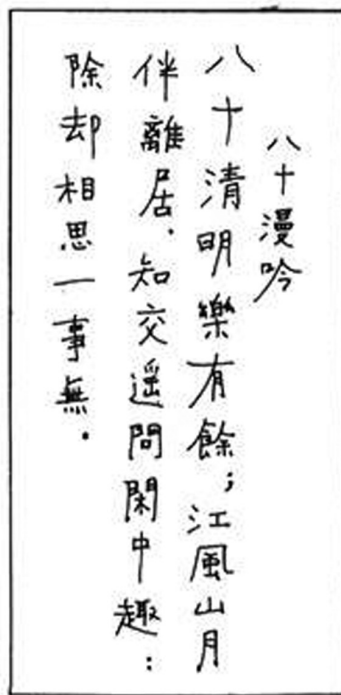 八十漫吟
八十清明樂有餘；江風山月
伴離居．知交遥問閑中趣：
除却相思一事無．